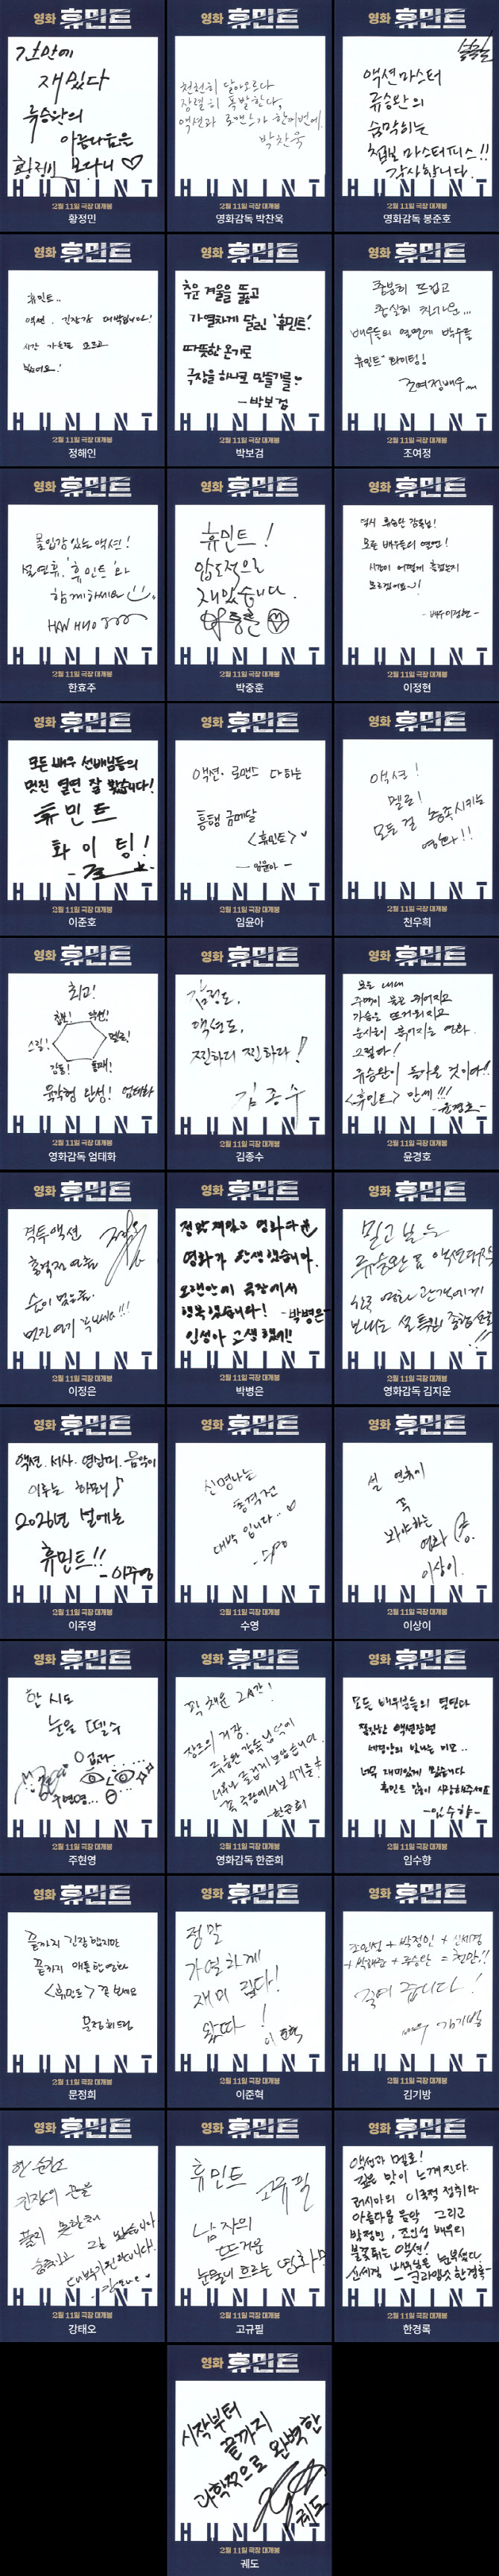 영화 휴민트
간만에
재밌다
류승완의
아름다움은
황정민 보다니 ♡
HUMINT
2월 11일 극장 대개봉
황정민
영화 휴민트
천천히 달아오르다
장렬히 폭발한다,
액션과 로맨스가 한꺼번에.
박찬욱
HUMINT
2월 11일 극장 대개봉
영화감독 박찬욱
영화 휴민트
액션마스터
류승완의
숨막히는
첩보 마스터피스!!
감사합니다.
HUMINT
2월 11일 극장 대개봉
영화감독 봉준호
영화 휴민트
휴민트..
액션, 긴장감 대박입니다!
시간 가는줄 모르고
봤어요.!
HUMINT
2월 11일 극장 대개봉
정해인
영화 휴민트
추운 겨울을 뚫고
가열차게 달릴 '휴민트'!
따뜻한 온기로
극장을 하나로 만들기를♡
- 박보검
HUMINT
2월 11일 극장 대개봉
박보검
영화 휴민트
충분히 뜨겁고
충실히 차가운...
배우들의 열연에 박수를
휴민트 화이팅!
조여정배우
HUMINT
2월 11일 극장 대개봉
조여정
영화 휴민트
몰입감있는 액션!
설 연휴, '휴민트'와
함께하세요
HAN HYO JOO
HUMINT
2월 11일 극장 대개봉
한효주
영화 휴민트
휴민트!
압도적으로
재밌습니다.
박중훈
HUMINT
2월 11일 극장 대개봉
박중훈
영화 휴민트
역시 류승완 감독님!
모든 배우들의 열연!
시간이 어떻게 흘렀는지
모르겠어요~!
- 배우이정현 -
HUMINT
2월 11일 극장 대개봉
이정현
영화 휴민트
모든 배우 선배님들의
멋진 열연 잘 봤습니다!
휴민트
화이팅!
HUMINT
2월 11일 극장 대개봉
이준호
영화 휴민트
액션. 로맨스 다하는
흥행 금메달
<휴민트>♥
- 임윤아 -
HUMINT
2월 11일 극장 대개봉
임윤아
영화 휴민트
액션!
멜로!
모든 걸 충족시키는
영화!!
HUMINT
2월 11일 극장 대개봉
천우희
영화 휴민트
최고!
첩보! 액션!
스릴! 멜로!
감동!
육각형 탄생! 엄태화
HUMINT
2월 11일 극장 대개봉
영화감독 엄태화
영화 휴민트
감정도,
액션도,
찐하디 찐하다!
김종수
HUMINT
2월 11일 극장 대개봉
김종수
영화 휴민트
보는 내내
주먹이 불끈 쥐어지고
가슴은 뜨거워지고
눈시울이 붉어지는 영화.
그렇다!
류승완이 돌아온 것이다!!
<휴민트> 만세!!!
- 윤경호 -
HUMINT
2월 11일 극장 대개봉
윤경호
영화 휴민트
격투액션
총격전
숨이 멎는줄.
멋진 연기 꼭 보세요!!!
HUMINT
2월 11일 극장 대개봉
이정은
영화 휴민트
정말 재밌고 영화다운
영화가 탄생했습니다.
오랜만에 극장에서
행복했습니다! - 박병은 -
인성아 고생했어!!
HUMINT
2월 11일 극장 대개봉
박병은
영화 휴민트
믿고 보는
류승완표 액션대작
한국 영화 관객에게
보내는 설 특선 종합선물!!
HUMINT
2월 11일 극장 대개봉
영화감독 김지운
영화 휴민트
액션. 서사. 연출미. 음악이
이루는 하모니♪
2026년 설에는
휴민트!!
- 이주영
HUMINT
2월 11일 극장 대개봉
이주영
영화 휴민트
신명나는
총격전
대박 입니다.. ♡
HUMINT
2월 11일 극장 대개봉
수영
영화 휴민트
설 연휴에
꼭
봐야하는
영화
이상이.
HUMINT
2월 11일 극장 대개봉
이상이
영화 휴민트
한 시도
눈을 뗄수
없다
주현영...
HUMINT
2월 11일 극장 대개봉
주현영
영화 휴민트
꽉 채운 2시간!
장르의 거장.
류승완 감독님 덕에
너무나 즐겁게 보았습니다.
꼭 극장에서 보시기를!
- 한준희
HUMINT
2월 11일 극장 대개봉
영화감독 한준희
영화 휴민트
모든 배우분들의 열연과
절절한 액션장면
세경언니의 빛나는 미모..
너무 재미있게 봤습니다
휴민트 많이 사랑해주세요
- 임수향 -
HUMINT
2월 11일 극장 대개봉
임수향
영화 휴민트
끝까지 긴장했지만
끝까지 애틋한영화
<휴민트> 꼭 보세요
문정희드림
HUMINT
2월 11일 극장 대개봉
문정희
영화 휴민트
정말
가열하게
재미 있다!
왔따!
이준혁
HUMINT
2월 11일 극장 대개봉
이준혁
영화 휴민트
조인성 + 박정민 + 신세경
+ 박해준 + 류승완 = 천만!!
죽여 줍니다!
배우 김기방
HUMINT
2월 11일 극장 대개봉
김기방
영화 휴민트
한 순간도
긴장의 끈을
놓지 못한채
숨죽이고 그걸 봤습니다
대박기원합니다.
HUMINT
2월 11일 극장 대개봉
강태오
영화 휴민트
휴민트
고규필
남자의
뜨거운
눈물이 흐르는 영화!!
HUMINT
2월 11일 극장 대개봉
고규필
영화 휴민트
액션과 멜로!
깊은 맛이 느껴진다.
러시아의 이국적 정취와
아름다운 음악 그리고
박정민, 조인성 배우의
불꽃튀는 액션!
신세경 나나님은 눈부셨다.
- 크라잉넛 한경록 -
HUMINT
2월 11일 극장 대개봉
한경록
영화 휴민트
시작부터
끝까지
과학적으로 완벽한
궤도
HUMINT
2월 11일 극장 대개봉
궤도